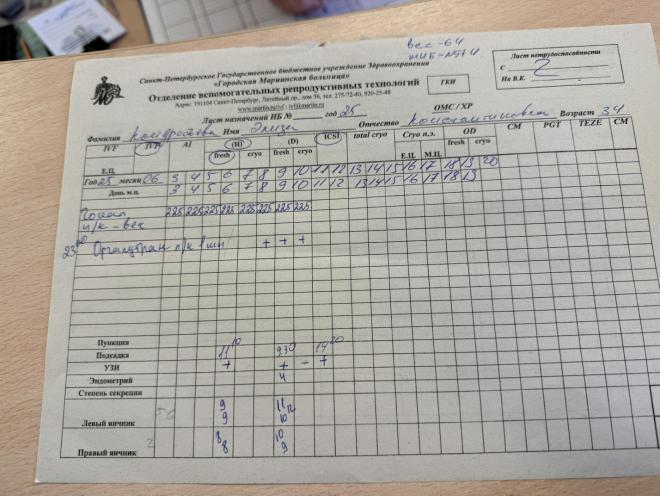 вес-64
Санкт-Петербургское Государственное бюджетное учреждение Здравоохранения
«Городская Мариинская больница»
Отделение вспомогательных репродуктивных технологий
Адрес: 191104 Санкт-Петербург, Литейный пр., дом 56, тел. 275-72-40, 920-25-48
ГКИ
Лист нетрудоспособности
С 2
На В.К.
Лист назначений ИБ № год 25
ОМС / ХР
Фамилия Имя Отчество Константиновна Возраст 34
IVF IVF AI (H) (D) ICSI total cryo Cryo п.э. OD CM PGT TEZE CM
fresh cryo fresh cryo Е.Ц. М.Ц. fresh cryo
Е.Ц.
Год 25 месяц 06 3 4 5 6 7 8 9 10 11 12 13 14 15 16 17 18 19 20
День м.ц. 3 4 5 6 7 8 9 10 11 12 13 14 15 16 17 18 19
225 225 225 225 225 225 225 225
п/к - веч
23 00 Оргалутран п/к + + +
Пункция
Подсадка 11 10 9 30
УЗИ + + - +
Эндометрий
Степень секреции
9 11 12
Левый яичник 9 10
8 10
Правый яичник 8 9